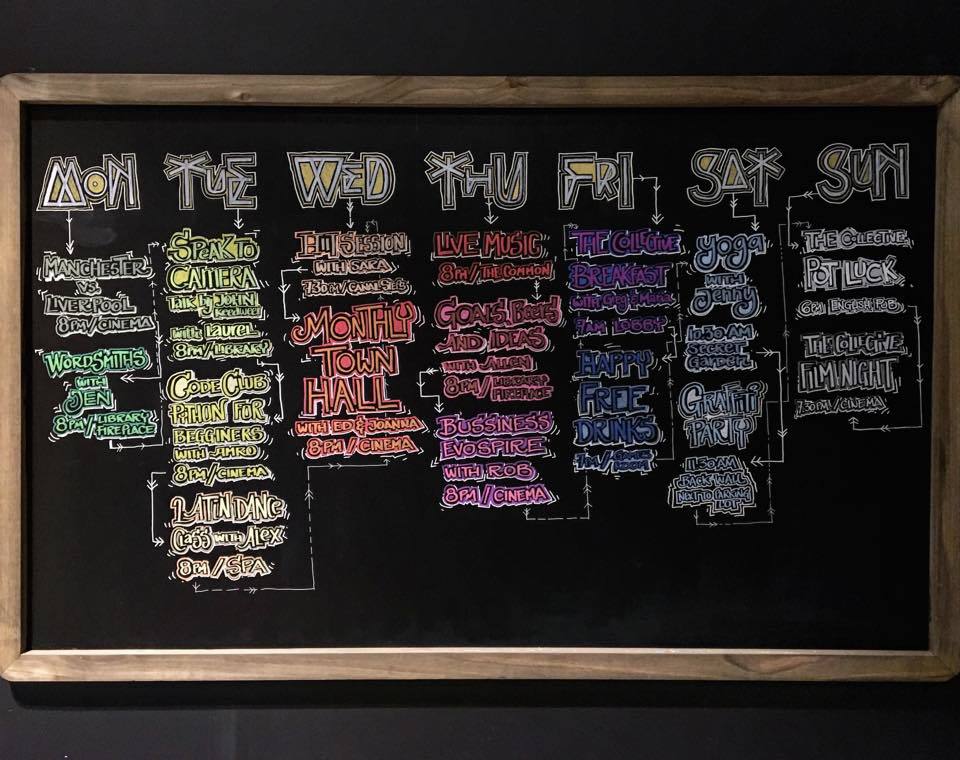 MON
MANCHESTER
VS
LIVERPOOL
8PM/CINEMA
WORDSMITHS
WITH
JEN
8PM/LIBRARY
FIREPLACE
TUE
SPEAK TO
CAMERA
Talk by JOHN
with Laurel
8PM/LIBRARY
CODE CLUB
PYTHON FOR
BEGGINERS
WITH AMRO
8PM/CINEMA
LATIN DANC
Class WITH Alex
8PM/SPA
WED
HIIT SESSION
WITH SARA
7.30PM/CANAL SIDE
MONTHLY
TOWN
HALL
WITH ED & JOANNA
8PM/CINEMA
THU
LIVE MUSIC
8PM/THE COMMON
GOALS, BEERS
AND IDEAS
WITH ALLEN
8PM/LIBRARY
FIREPLACE
BUSSINESS
EVOSPIRE
WITH ROB
8PM//CINEMA
FRI
THE COLLECTIVE
BREAKFAST
with Greg & Maria
9AM LOBBY
HAPPY
FREE
DRINKS
7PM/GAMES
ROOM
SAT
yoga
WITH
Jenny
10.30AM
SECRET
GARDEN
GRAFFITI
PARTY
11.30AM
BACK WALL
NEXT TO PARKING
LOT
SUN
THE COLLECTIVE
POT LUCK
6PM ENGLISH PUB
THE COLLECTIVE
FILM NIGHT
7.30PM/CINEMA